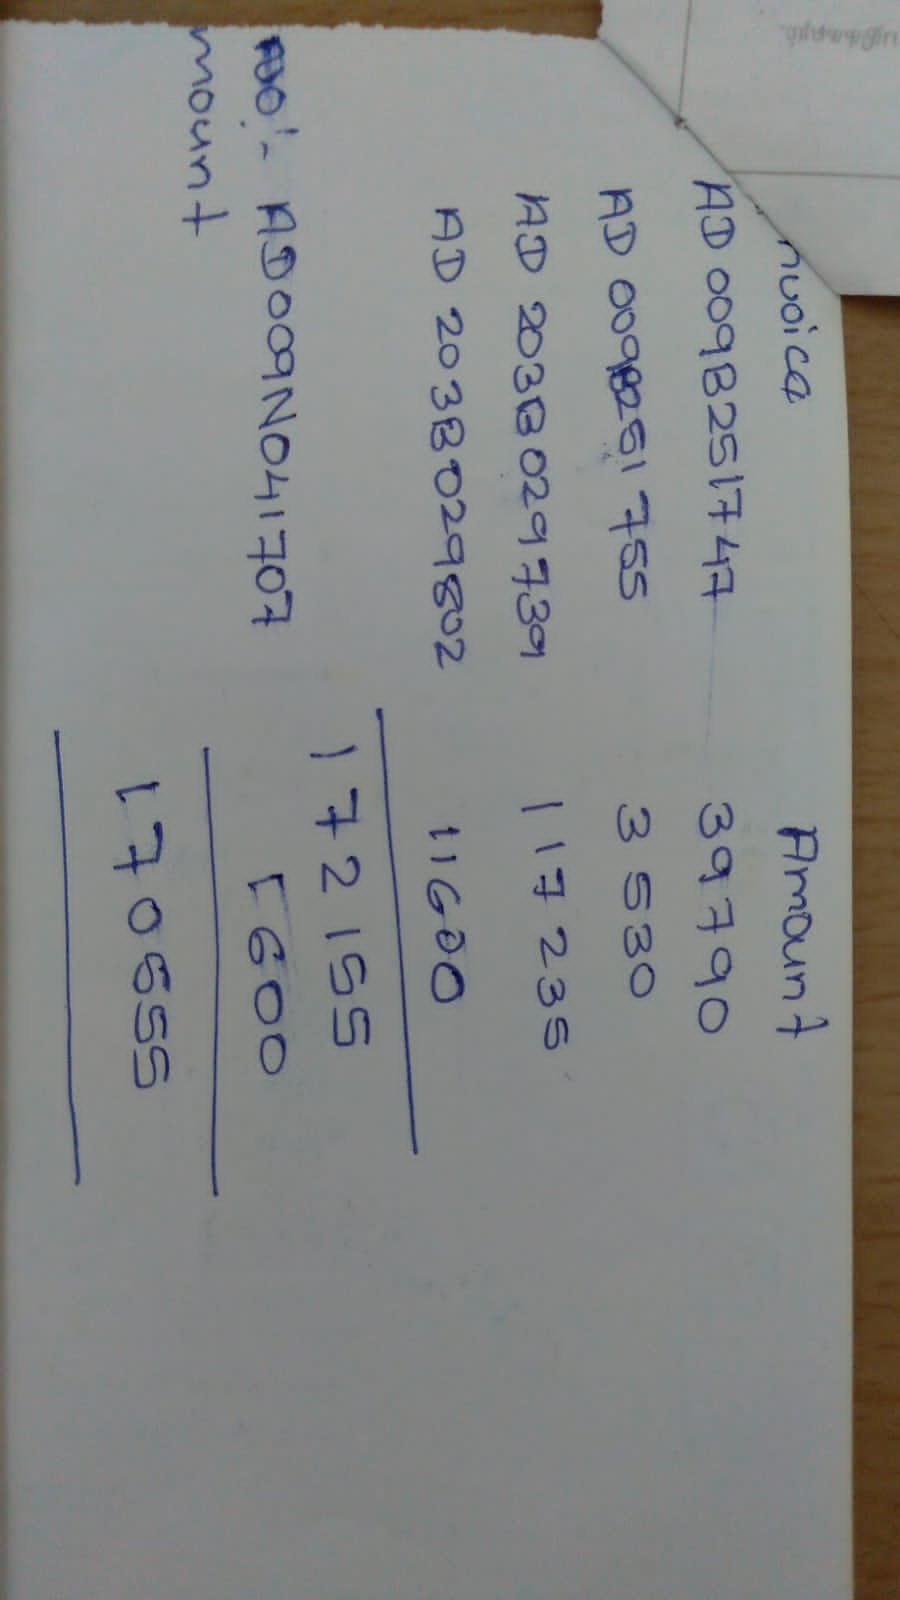 nvoica Amount
AD 009B251747 39790
AD 009B251755 3530
AD 203B029739 117235
AD 203B029802 11600
172155
AD009N041707 1600
mount 170555